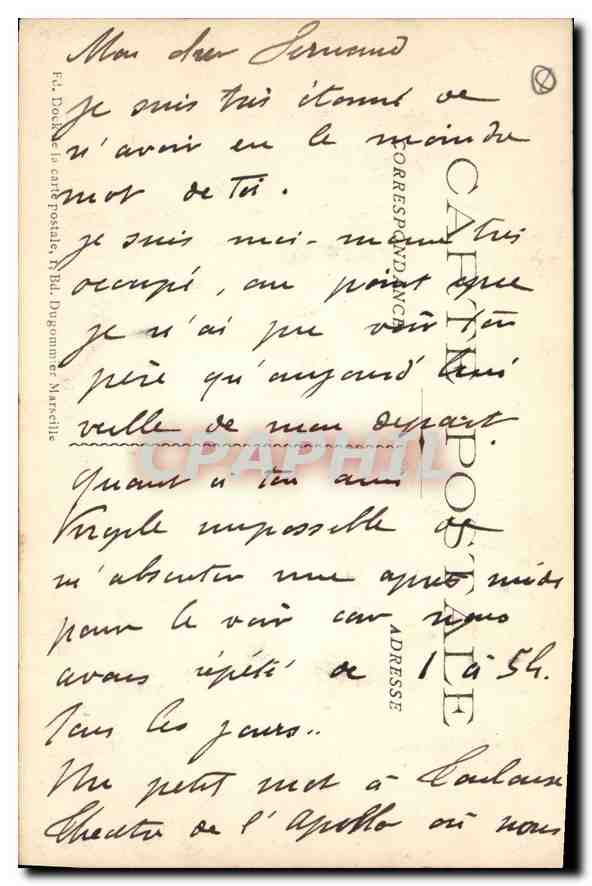 Mon cher Fernand
je suis très étonné de
n'avoir eu le moindre
mot de Toi.
je suis moi-même très
occupé, au point que
je n'ai pu voir ton
père qu'aujourd'hui
veille de mon départ.
Quant à ton ami
Virgile impossible de
m'absenter une après midi
pour le voir car nous
avons répété de 1 à 5h.
tous les jours..
Un petit mot à Toulouse
Théâtre de l'Apollo où nous
CARTE POSTALE
CORRESPONDANCE
ADRESSE
Ed. Dock de la carte postale, 1, Bd. Dugommier Marseille
CPAPHIL